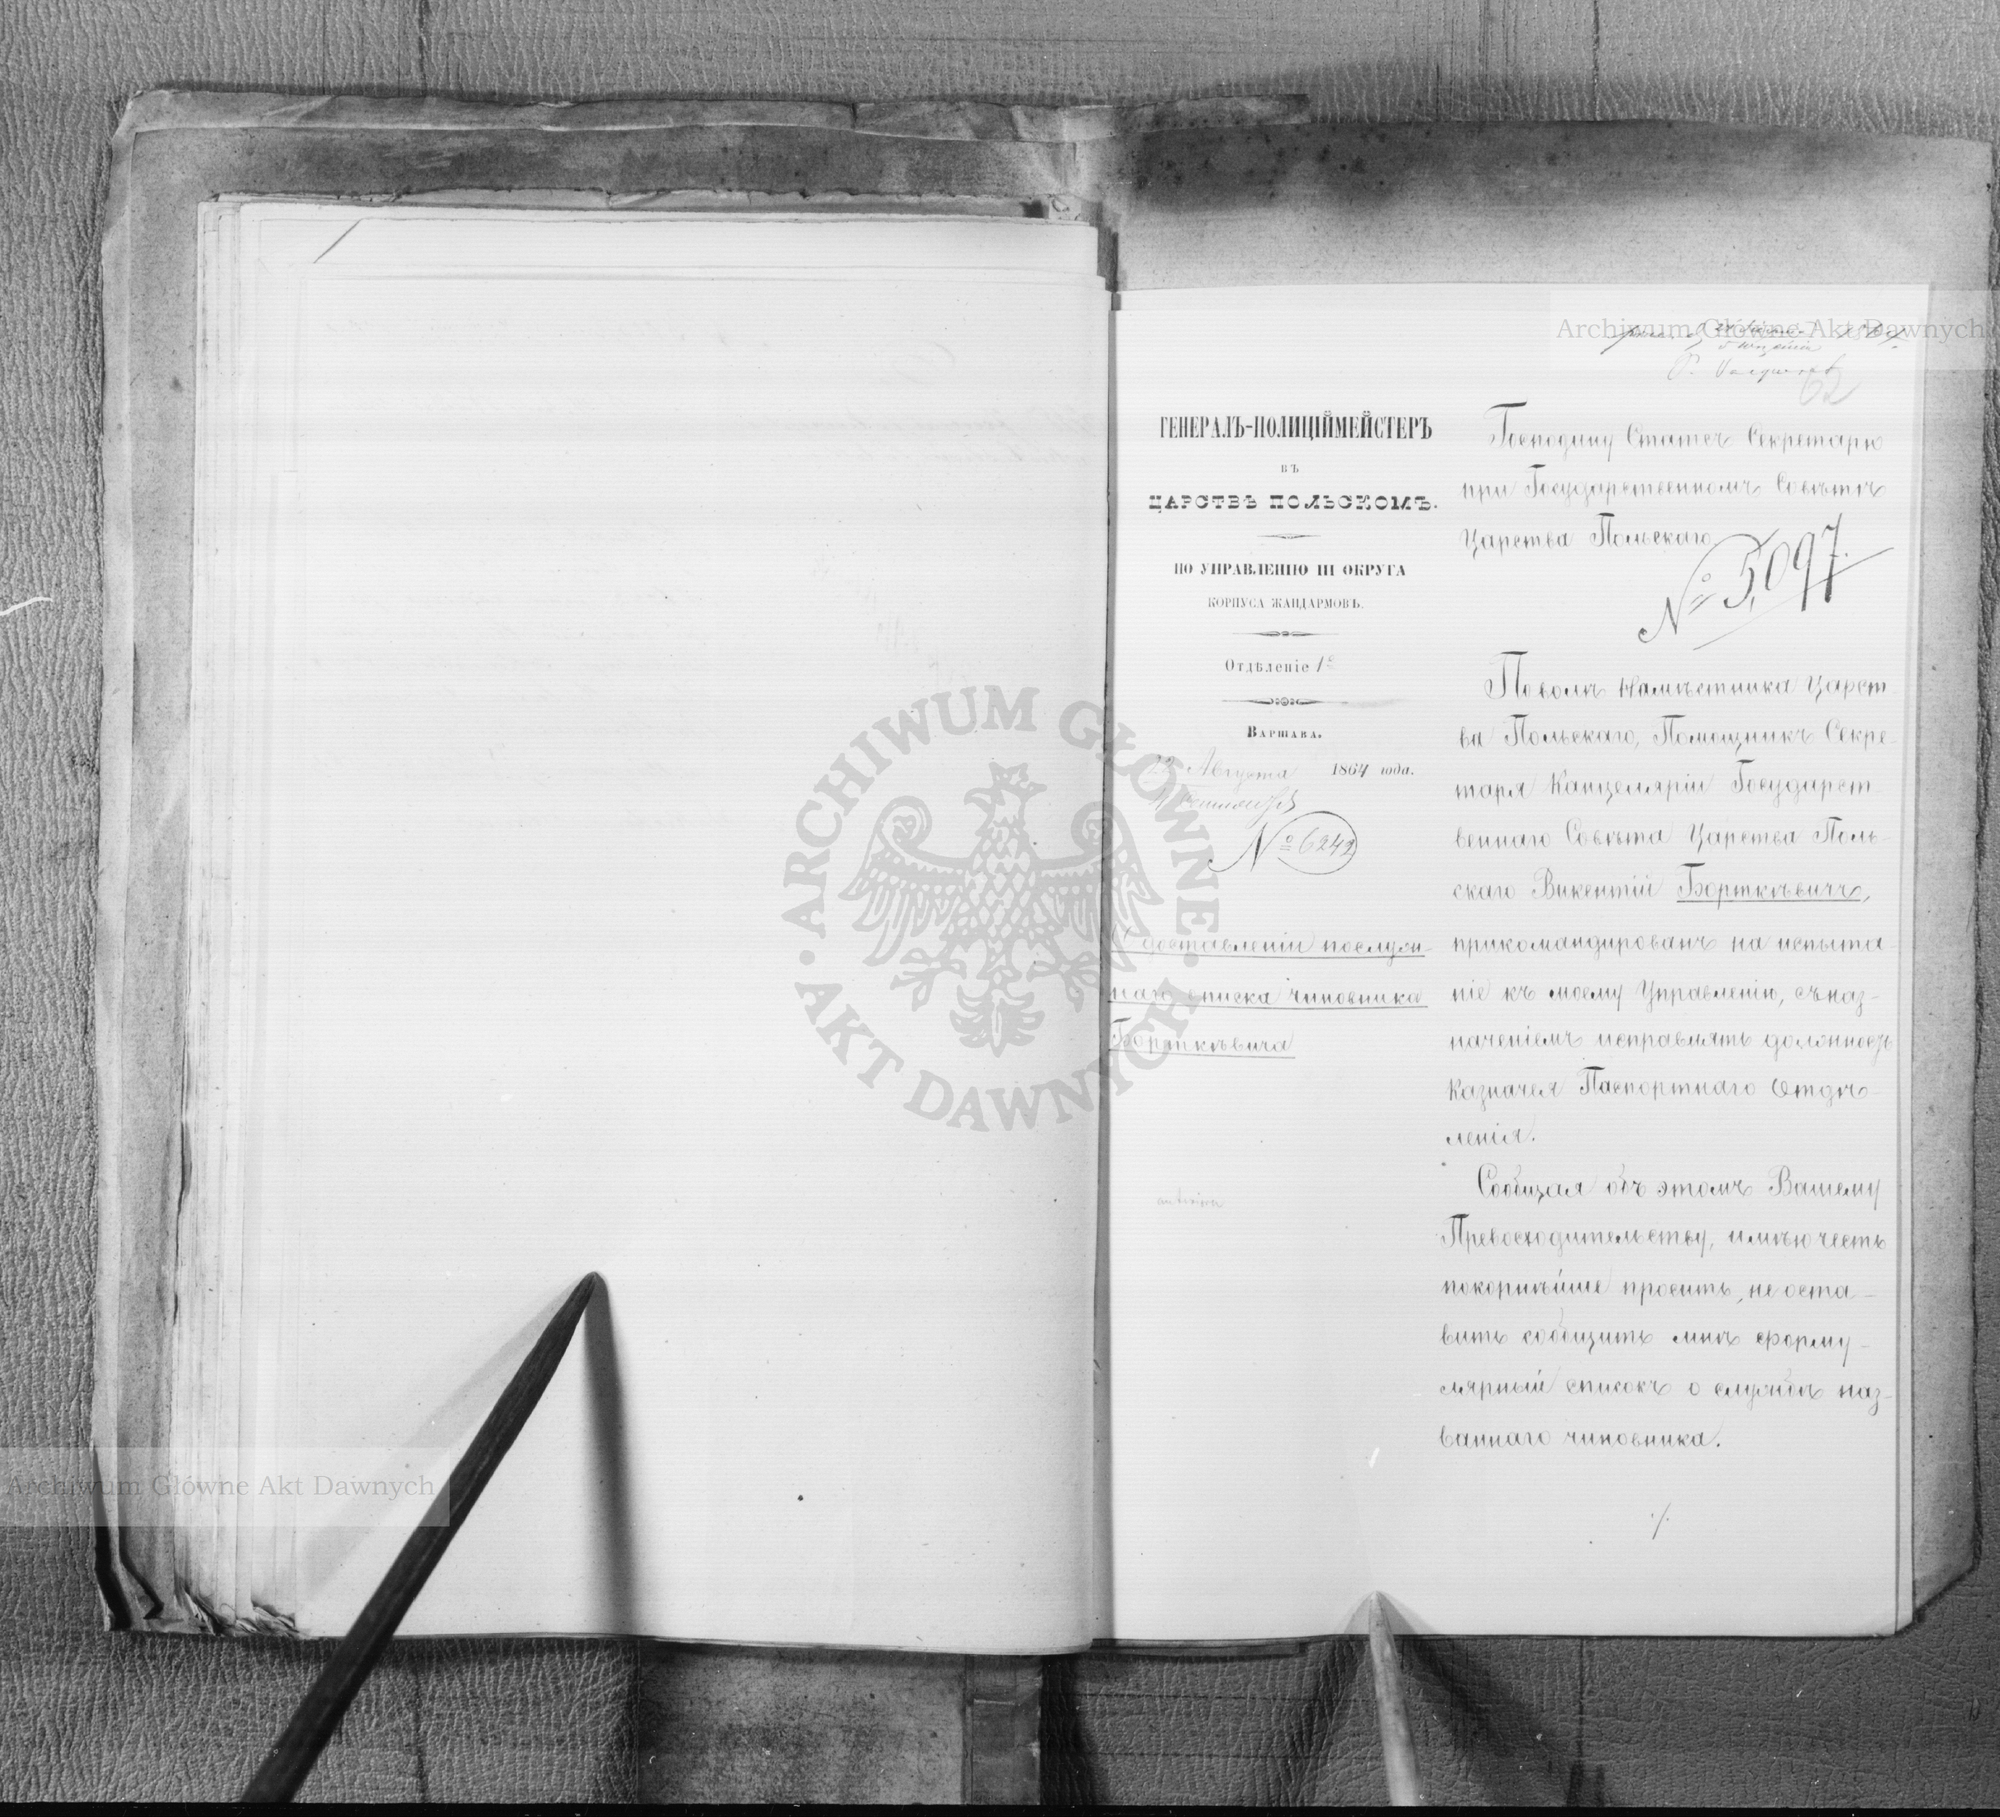 Archiwum Główne Akt Dawnych
62
ГЕНЕРАЛЪ-ПОЛИЦІЙМЕЙСТЕРЪ
ВЪ
ЦАРСТВѢ ПОЛЬСКОМЪ.
ПО УПРАВЛЕНІЮ III ОКРУГА
КОРПУСА ЖАНДАРМОВЪ.
Отдѣленіе 1е
Варшава.
22 Августа 1864 года.
№ 6242
О доставленіи послуж-
наго списка чиновника
Борткѣвича
Господину Статсъ Секретарю
при Государственномъ Совѣтѣ
Царства Польскаго
№ 5,097.
По волѣ Намѣстника Царст-
ва Польскаго, Помощникъ Секре-
таря Канцеляріи Государст-
веннаго Совѣта Царства Поль-
скаго Викентій Борткѣвичъ,
прикомандированъ на испыта-
ніе къ моему Управленію, съ наз-
наченіемъ исправлять должность
Казначея Паспортнаго Отдѣ-
ленія.
Сообщая объ этомъ Вашему
Превосходительству, имѣю честь
покорнѣйше просить, не оста-
вить сообщить мнѣ форму-
лярный списокъ о службѣ наз-
ваннаго чиновника.
./.
ARCHIWUM GŁÓWNE · AKT DAWNYCH ·
Archiwum Główne Akt Dawnych